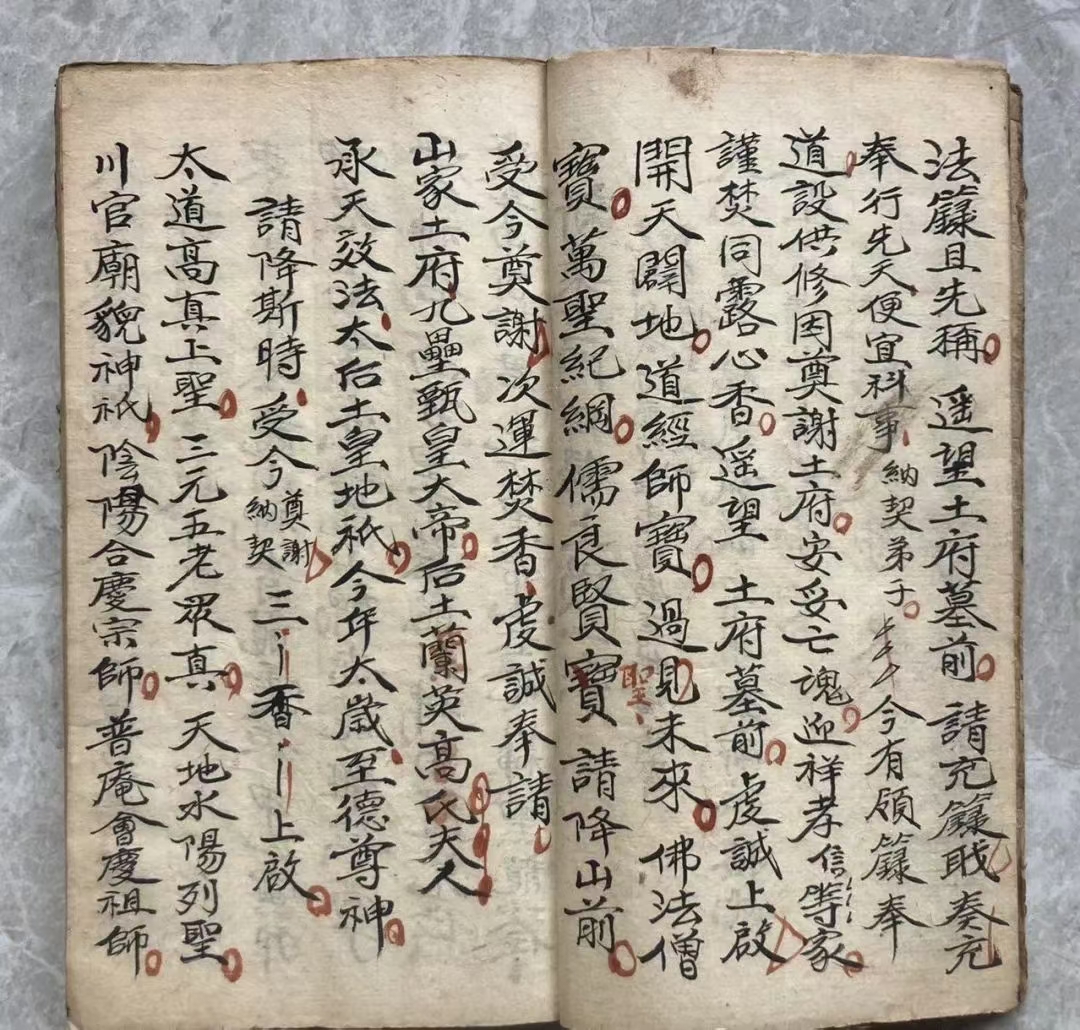 法籙且先稱 遥望土府墓前 請充籙职奏充
奉行先天便宜科事 納契弟子 今有領籙奉
道設供修因奠謝土府安妥亡魂迎祥孝信等家
謹焚同露心香遥望 土府墓前虔誠上啟
開天闢地道經師寳 過見未來 佛法僧
寳 萬聖紀綱儒良賢寳 請降山前
聖
受今奠謝 次運焚香虔誠奉請
山家土府九壘甄皇大帝后土蘭英高氏夫人
承天效法太后土皇地祇今年太歲至德尊神
請降斯時 受今奠謝納契 三 香 上啟
太道高真上聖 三元五老眾真 天地水陽列聖
川官廟貌神祇 陰陽合慶宗師 普庵會慶祖師